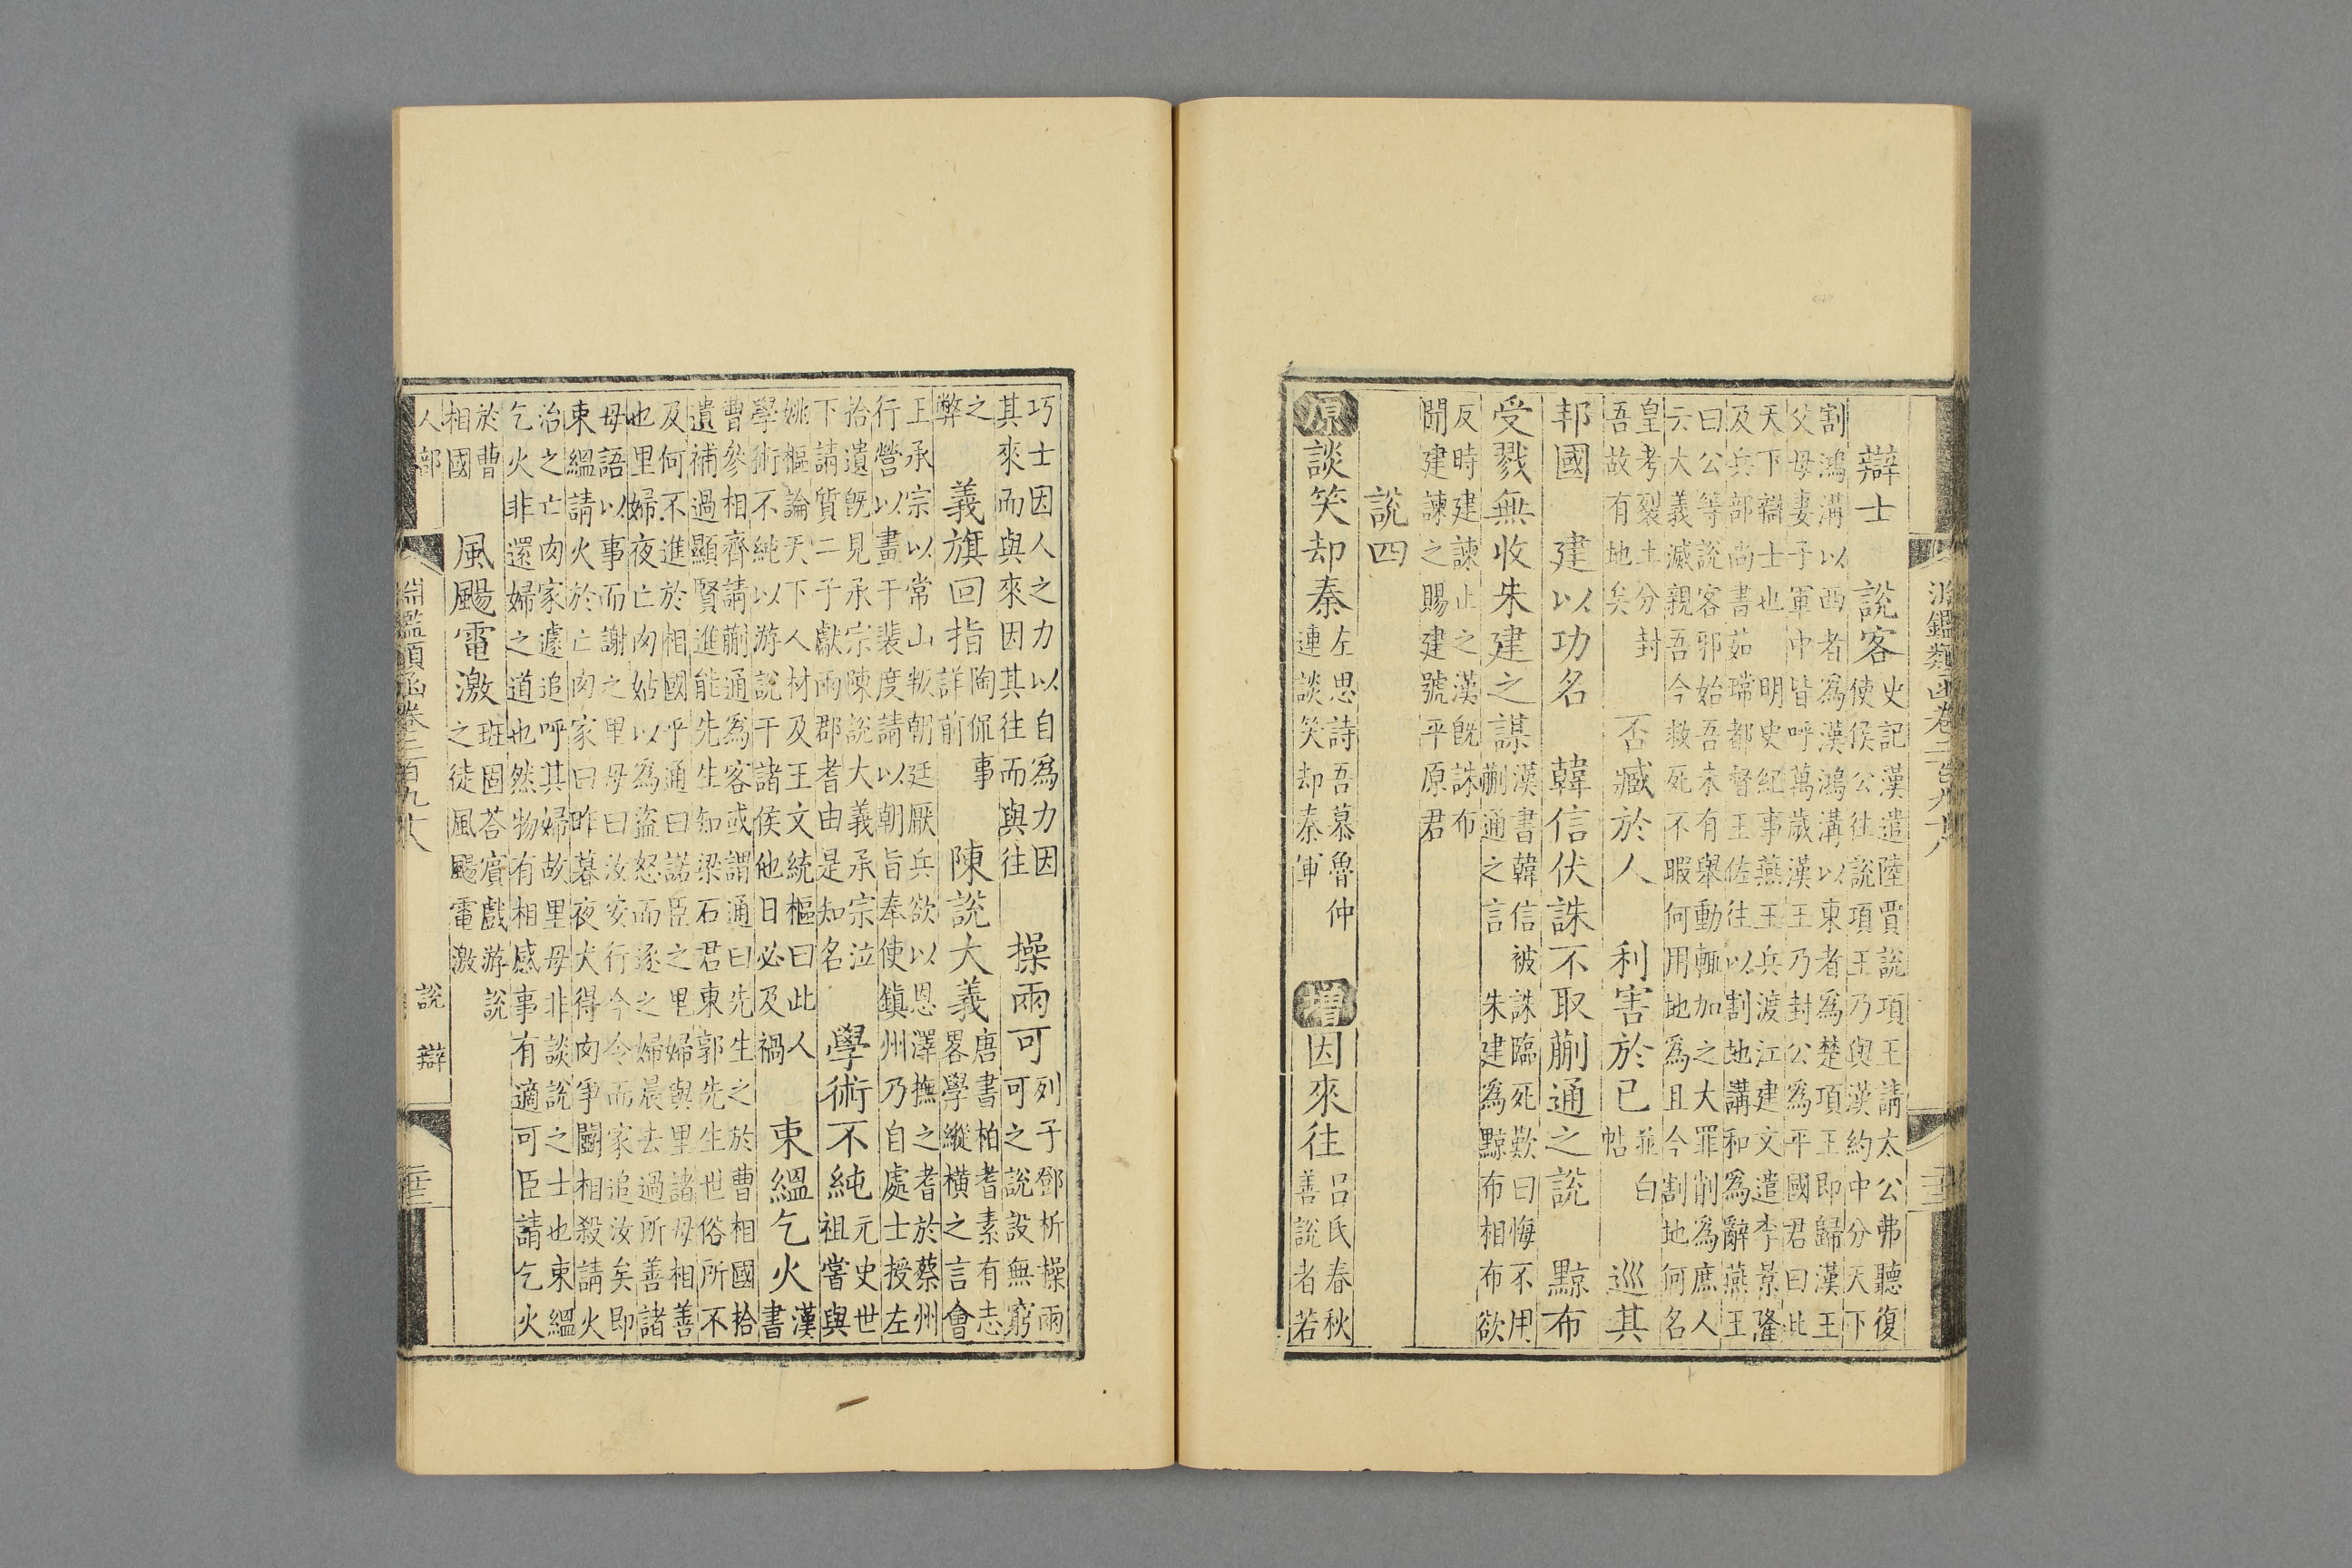 淵鑑類函卷二百九十八
辯士　說客　史記漢遣陸賈說項王請太公弗聽復
使侯公往說項王乃與漢約中分天下
割鴻溝以西者爲漢鴻溝以東者爲楚項王即歸漢王
父母妻子軍中皆呼萬歲漢王乃封公爲平國君曰此
天下辯士也　明史紀事燕王兵渡江建文遣李景隆
及兵部尚書茹瑺都督王佐往以割地講和爲辭燕王
曰公等說客邪始吾未有舉動輒加之大罪削爲庶人
云大義滅親吾今救死不暇何用地爲且今割地何名
皇考裂土分封
吾故有地矣　否臧於人　利害於已　並白帖　巡其
邦國　建以功名　韓信伏誅不取蒯通之說　黥布
受戮無收朱建之謀　漢書韓信被誅臨死歎曰悔不用
蒯通之言　朱建爲黥布相布欲
反時建諫止之漢旣誅布
聞建諫之賜建號平原君
說四
原談笑却秦　左思詩吾慕魯仲
連談笑却秦軍　增因來往　呂氏春秋
善說者若
巧士因人之力以自爲力因
其來而與來因其往而與往　操兩可　列子鄧析操兩
可之說設無窮
之弊　義旗回指　陶侃事
詳前　陳說大義　唐書柏耆素有志
畧學縱橫之言會
王承宗以常山叛朝廷厭兵欲以恩澤撫之耆於蔡州
行營以畫干裴度請以朝旨奉使鎭州乃自處士授左
拾遺旣見承宗陳說大義承宗泣
下請質二子獻兩郡耆由是知名　學術不純　元史世
祖嘗與
姚樞論天下人材及王文統樞曰此人
學術不純以游說干諸侯他日必及禍　束縕乞火　漢
書
曹參相齊請蒯通爲客或謂通曰先生之於曹相國拾
遺補過顯賢進能先生知梁石君東郭先生世俗所不
及何不進於相國乎通曰諾臣之里婦與里諸母相善
也里婦夜亡肉姑以爲盜怒而逐之婦晨去過所善諸
母語以事而謝之里母曰汝安行今令而家追汝矣即
束縕請火於亡肉家曰昨暮夜犬得肉爭鬭相殺請火
治之亡肉家遽追呼其婦故里母非談說之士也束縕
乞火非還婦之道也然物有相感事有適可臣請乞火
於曹
相國　風颺電激　班固荅賓戲游說
之徒風颺電激
人部　淵鑑類函卷二百九十八　說　辯